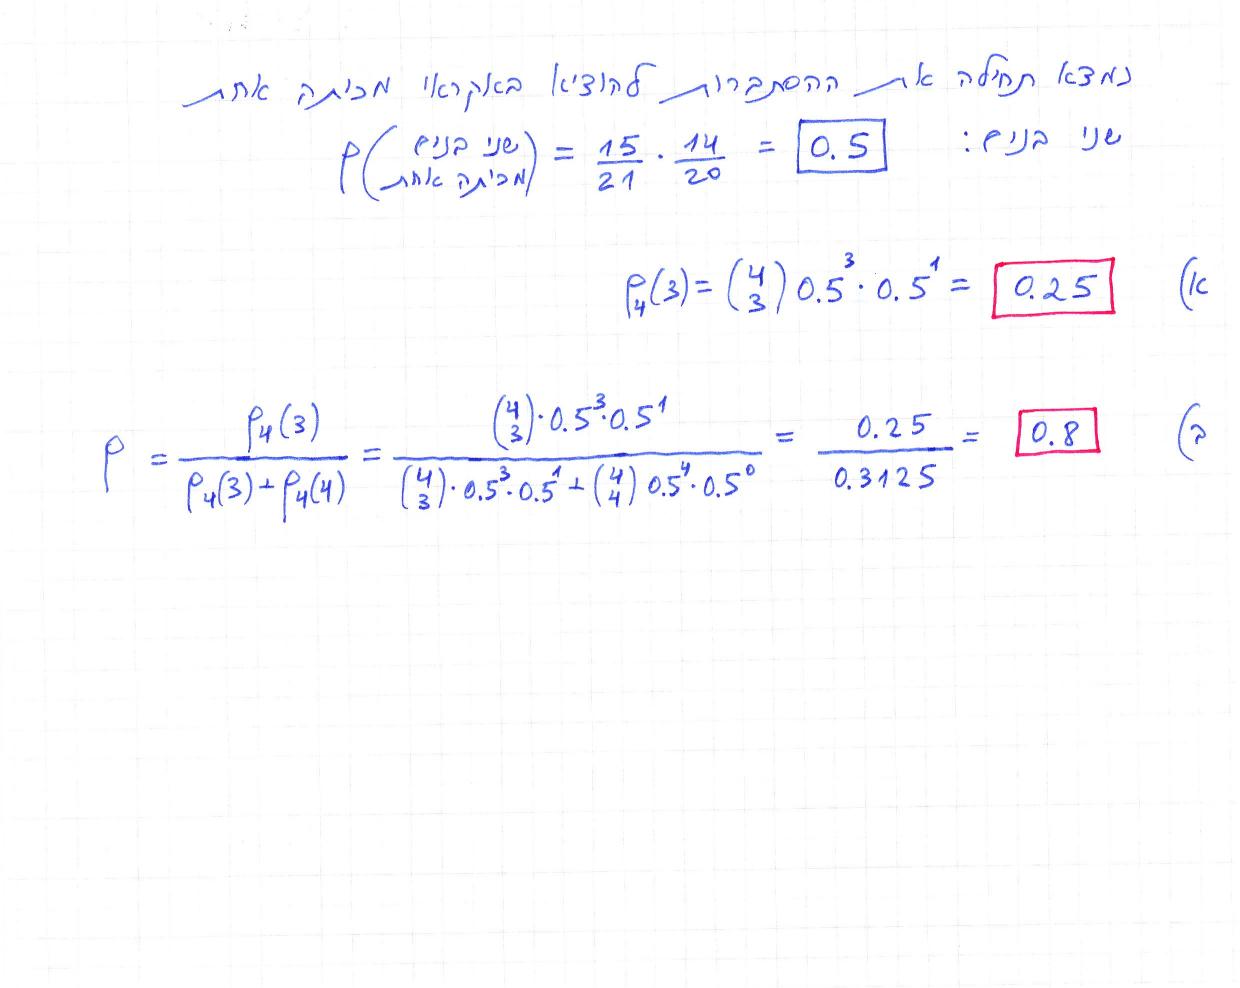 נמצא תחילה את ההסתברות להוציא באקראי מכיתה אחת
שני בנים:
P(שני בנים מכיתה אחת) = 15/21 · 14/20 = 0.5
א) P₄(3) = (4 3) 0.5³ · 0.5¹ = 0.25
ב) P = P₄(3) / (P₄(3) + P₄(4)) = ((4 3) · 0.5³ · 0.5¹) / ((4 3) · 0.5³ · 0.5¹ + (4 4) 0.5⁴ · 0.5⁰) = 0.25 / 0.3125 = 0.8